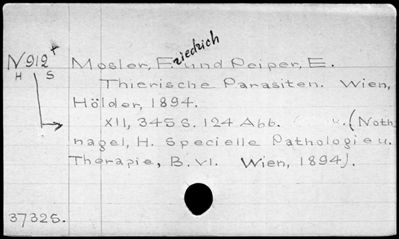 N 912 +
H S
Mosler, Friedrich und Peiper, E.
Thierische Parasiten. Wien,
Hölder, 1894.
XII, 345 S. 124 Abb. u. (Noth
nagel, H. Specielle Pathologie u.
Therapie, B. VI. Wien, 1894).
37325.